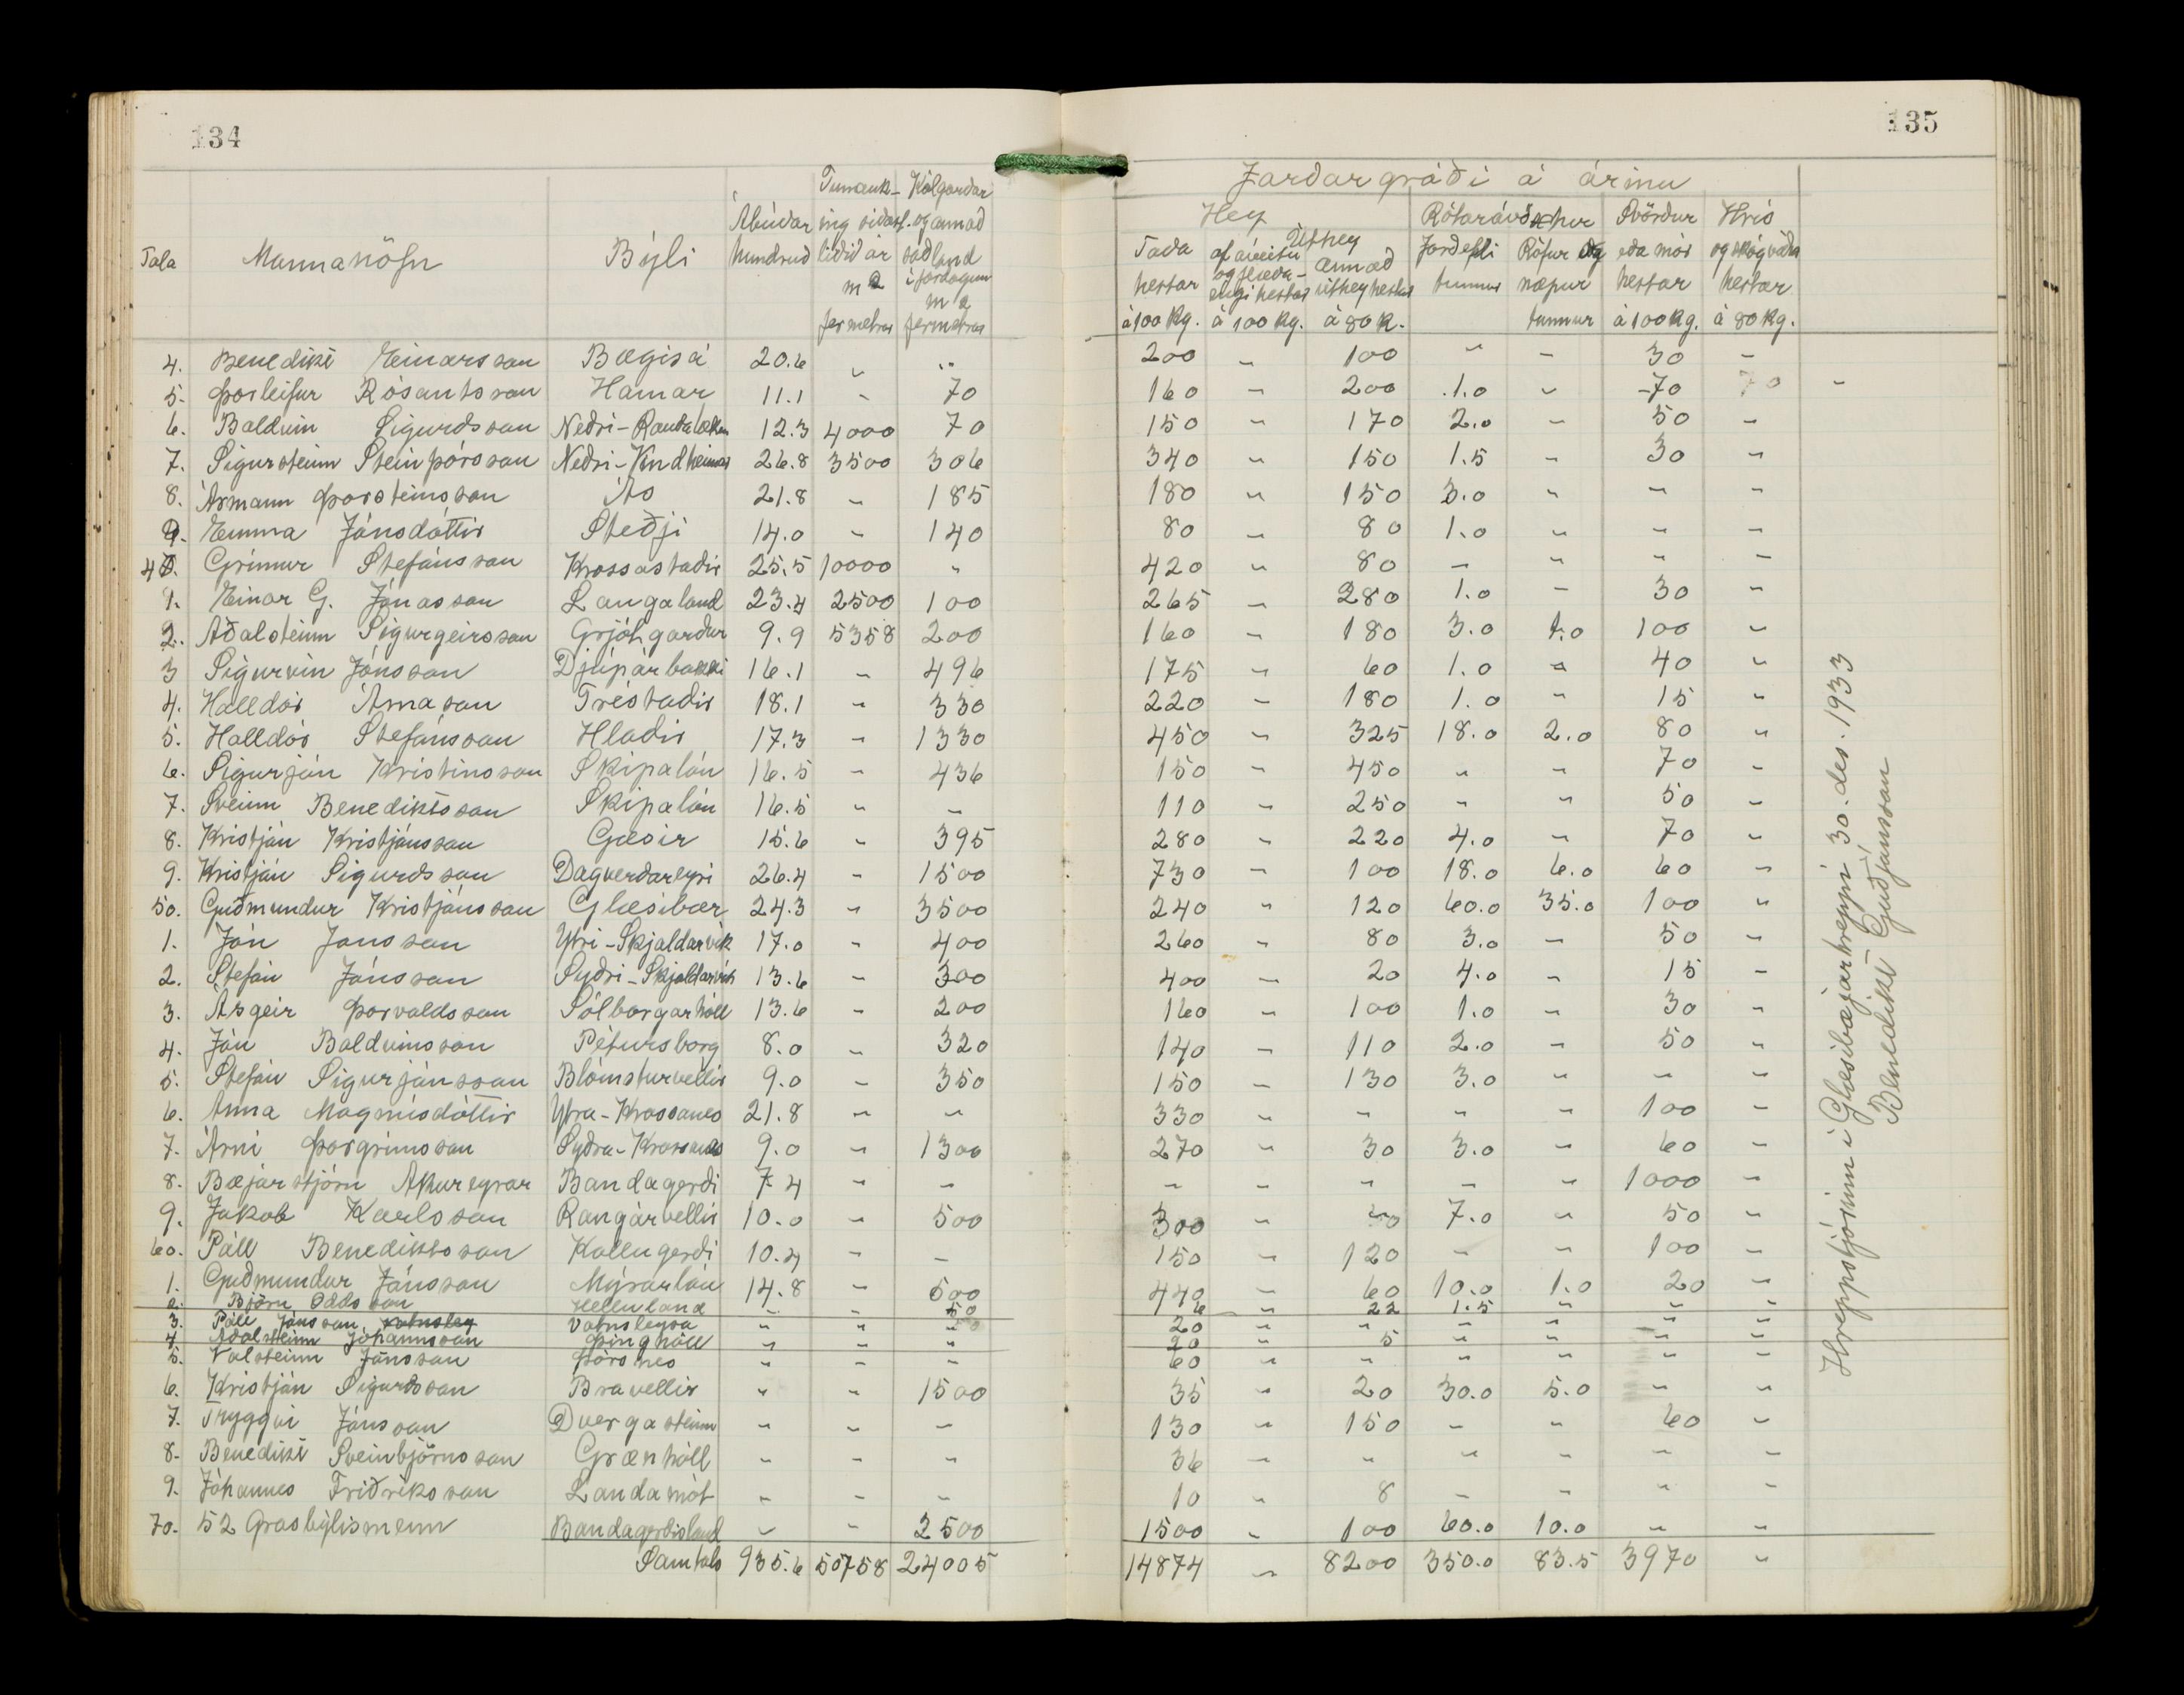 134
135
Tala Mannanöfn Býli Ábúðar hundruð Túnauk- ing síðastl. liðið ár m2 fermetrar Kálgarðar og annað sáðland í fardögum m2 fermetrar
Jarðargróði á árinu
Hey Rótarávextur Svörður eða mór hestar á 100 kg. Hrís og skógviður hestar á 80 kg.
Taða hestar á 100 kg. Úthey af áveitu og flæðiengi hestar á 100 kg. annað úthey hestar á 80 k. Jarðepli tunnur Rófur og næpur tunnur
4. Benedikt Einarsson Bægisá 20.6 " " 200 " 100 " " 30 "
5. Þorleifur Rósantsson Hamar 11.1 " 70 160 " 200 1.0 " 70 70 "
6. Baldvin Sigurðsson Neðri-Rauðalækur 12.3 4000 70 150 " 170 2.0 " 50 "
7. Sigursteinn Steinþórsson Neðri-Vindheimar 26.8 3500 306 340 " 150 1.5 " 30 "
8. Ármann Þorsteinsson Ás 21.8 " 185 180 " 150 3.0 " " "
9. Emma Jónsdóttir Steðji 14.0 " 140 80 " 80 1.0 " " "
40. Grímur Stefánsson Krossastaðir 25.5 10000 " 420 " 80 " " " "
1. Einar G. Jónasson Laugaland 23.4 2500 100 265 " 280 1.0 " 30 "
2. Aðalsteinn Sigurgeirsson Grjótgarður 9.9 5358 200 160 " 180 3.0 1.0 100 "
3 Sigurvin Jónsson Djúpárbakki 16.1 " 496 175 " 60 1.0 " 40 "
4. Halldór Árnason Tréstaðir 18.1 " 330 220 " 180 1.0 " 15 "
5. Halldór Stefánsson Hlaðir 17.3 " 1330 450 " 325 18.0 2.0 80 "
6. Sigurjón Kristinsson Skipalón 16.5 " 436 150 " 450 " " 70 "
7. Sveinn Benediktsson Skipalón 16.5 " " 110 " 250 " " 50 "
8. Kristján Kristjánsson Gæsir 15.6 " 395 280 " 220 4.0 " 70 "
9. Kristján Sigurðsson Dagverðareyri 26.4 " 1500 730 " 100 18.0 6.0 60 "
50. Guðmundur Kristjánsson Glæsibær 24.3 " 3500 240 " 120 60.0 35.0 100 "
1. Jón Jónsson Ytri-Skjaldarvík 17.0 " 400 260 " 80 3.0 " 50 "
2. Stefán Jónsson Syðri-Skjaldarvík 13.6 " 300 400 " 20 4.0 " 15 "
3. Ásgeir Þorvaldsson Sólborgarhóll 13.6 " 200 160 " 100 1.0 " 30 "
4. Jón Baldvinsson Pétursborg 8.0 " 320 140 " 110 2.0 " 50 "
5. Stefán Sigurjónsson Blómsturvellir 9.0 " 350 150 " 130 3.0 " " "
6. Anna Magnúsdóttir Ytra-Krossanes 21.8 " " 330 " " " " 100 "
7. Árni Þorgrímsson Syðra-Krossanes 9.0 " 1300 270 " 30 3.0 " 60 "
8. Bæjarstjórn Akureyrar Bandagerði 7.4 " " " " " " " 1000 "
9. Jakob Karlsson Rangárvellir 10.0 " 500 300 " 7.0 " 50 "
60. Páll Benediktsson Kollugerði 10.4 " " 150 " 120 " " 100 "
1. Guðmundur Jónsson Mýrarlón 14.8 " 600 440 " 60 10.0 1.0 20 "
2. Björn Oddsson Hellnland " " 50 6 " 22 1.5 " " "
3. Páll Jónsson Vatnsleysa " " " 20 " " " " " "
4. Aðalsteinn Jóhannsson Þinghóll " " " 20 " 5 " " " "
5. Valsteinn Jónsson Þórsnes " " " 60 " " " " " "
6. Kristján Sigurðsson Bravellir " " 1500 35 " 20 30.0 5.0 " "
7. Tryggvi Jónsson Dvergasteinn " " " 130 " 150 " " 60 "
8. Benedikt Sveinbjörnsson Grænhóll " " " 36 " " " " " "
9. Jóhannes Friðriksson Landamót " " " 10 " 8 " " " "
70. 52 Grasbýlismenn Bandagerðisland " " 2500 1500 " 100 60.0 10.0 " "
Samtals 935.6 50758 24005 14874 " 8200 350.0 83.5 3970 "
Hreppstjórinn í Glæsibæjarhreppi 30. des. 1933
Benedikt Guðjónsson